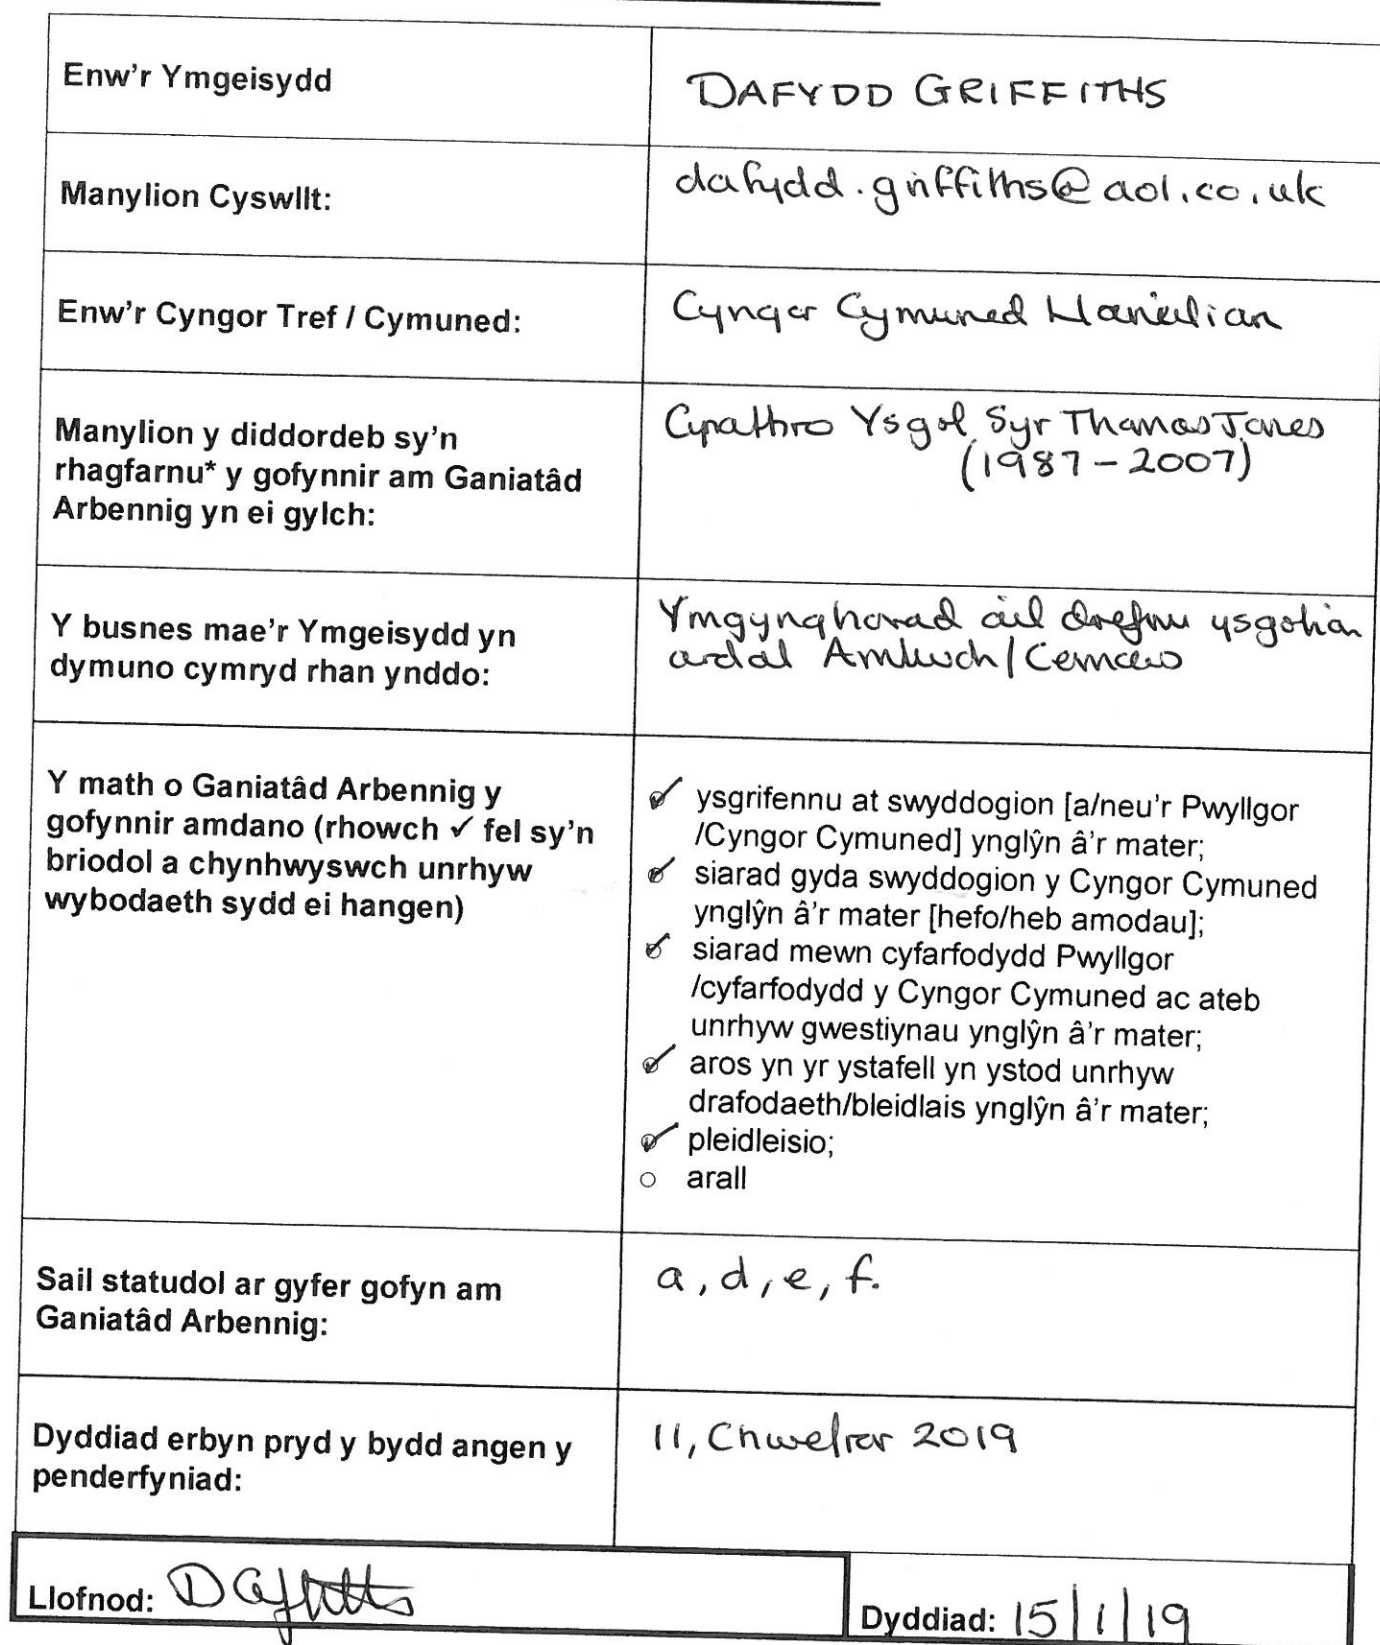 Enw'r Ymgeisydd
DAFYDD GRIFFITHS
Manylion Cyswllt:
dafydd.griffiths@aol.co.uk
Enw'r Cyngor Tref / Cymuned:
Cyngor Cymuned Llaneilian
Manylion y diddordeb sy'n
rhagfarnu* y gofynnir am Ganiatâd
Arbennig yn ei gylch:
Cynathro Ysgol Syr Thomas Jones
(1987-2007)
Y busnes mae'r Ymgeisydd yn
dymuno cymryd rhan ynddo:
Ymgynghorad ail drefnu ysgolion
ardal Amlwch/Cemaes
Y math o Ganiatâd Arbennig y
gofynnir amdano (rhowch ✓ fel sy'n
briodol a chynhwyswch unrhyw
wybodaeth sydd ei hangen)
✓ ysgrifennu at swyddogion [a/neu'r Pwyllgor
/Cyngor Cymuned] ynglŷn â'r mater;
✓ siarad gyda swyddogion y Cyngor Cymuned
ynglŷn â'r mater [hefo/heb amodau];
✓ siarad mewn cyfarfodydd Pwyllgor
/cyfarfodydd y Cyngor Cymuned ac ateb
unrhyw gwestiynau ynglŷn â'r mater;
✓ aros yn yr ystafell yn ystod unrhyw
drafodaeth/bleidlais ynglŷn â'r mater;
✓ pleidleisio;
○ arall
Sail statudol ar gyfer gofyn am
Ganiatâd Arbennig:
a, d, e, f.
Dyddiad erbyn pryd y bydd angen y
penderfyniad:
11, Chwefror 2019
Llofnod:
Dyddiad: 15/1/19